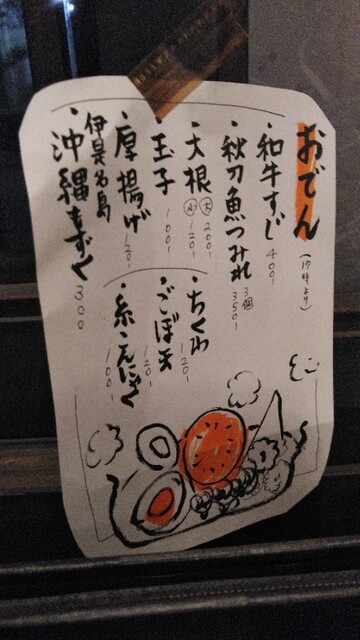 おでん
(17時より)
和牛すじ 400-
秋刀魚つみれ 3個 350-
大根 大 200- 小 120-
玉子 100-
厚揚げ 120-
伊是名島
沖縄もずく 300
ちくわ 120-
ごぼ天 120-
糸こんにゃく 100-